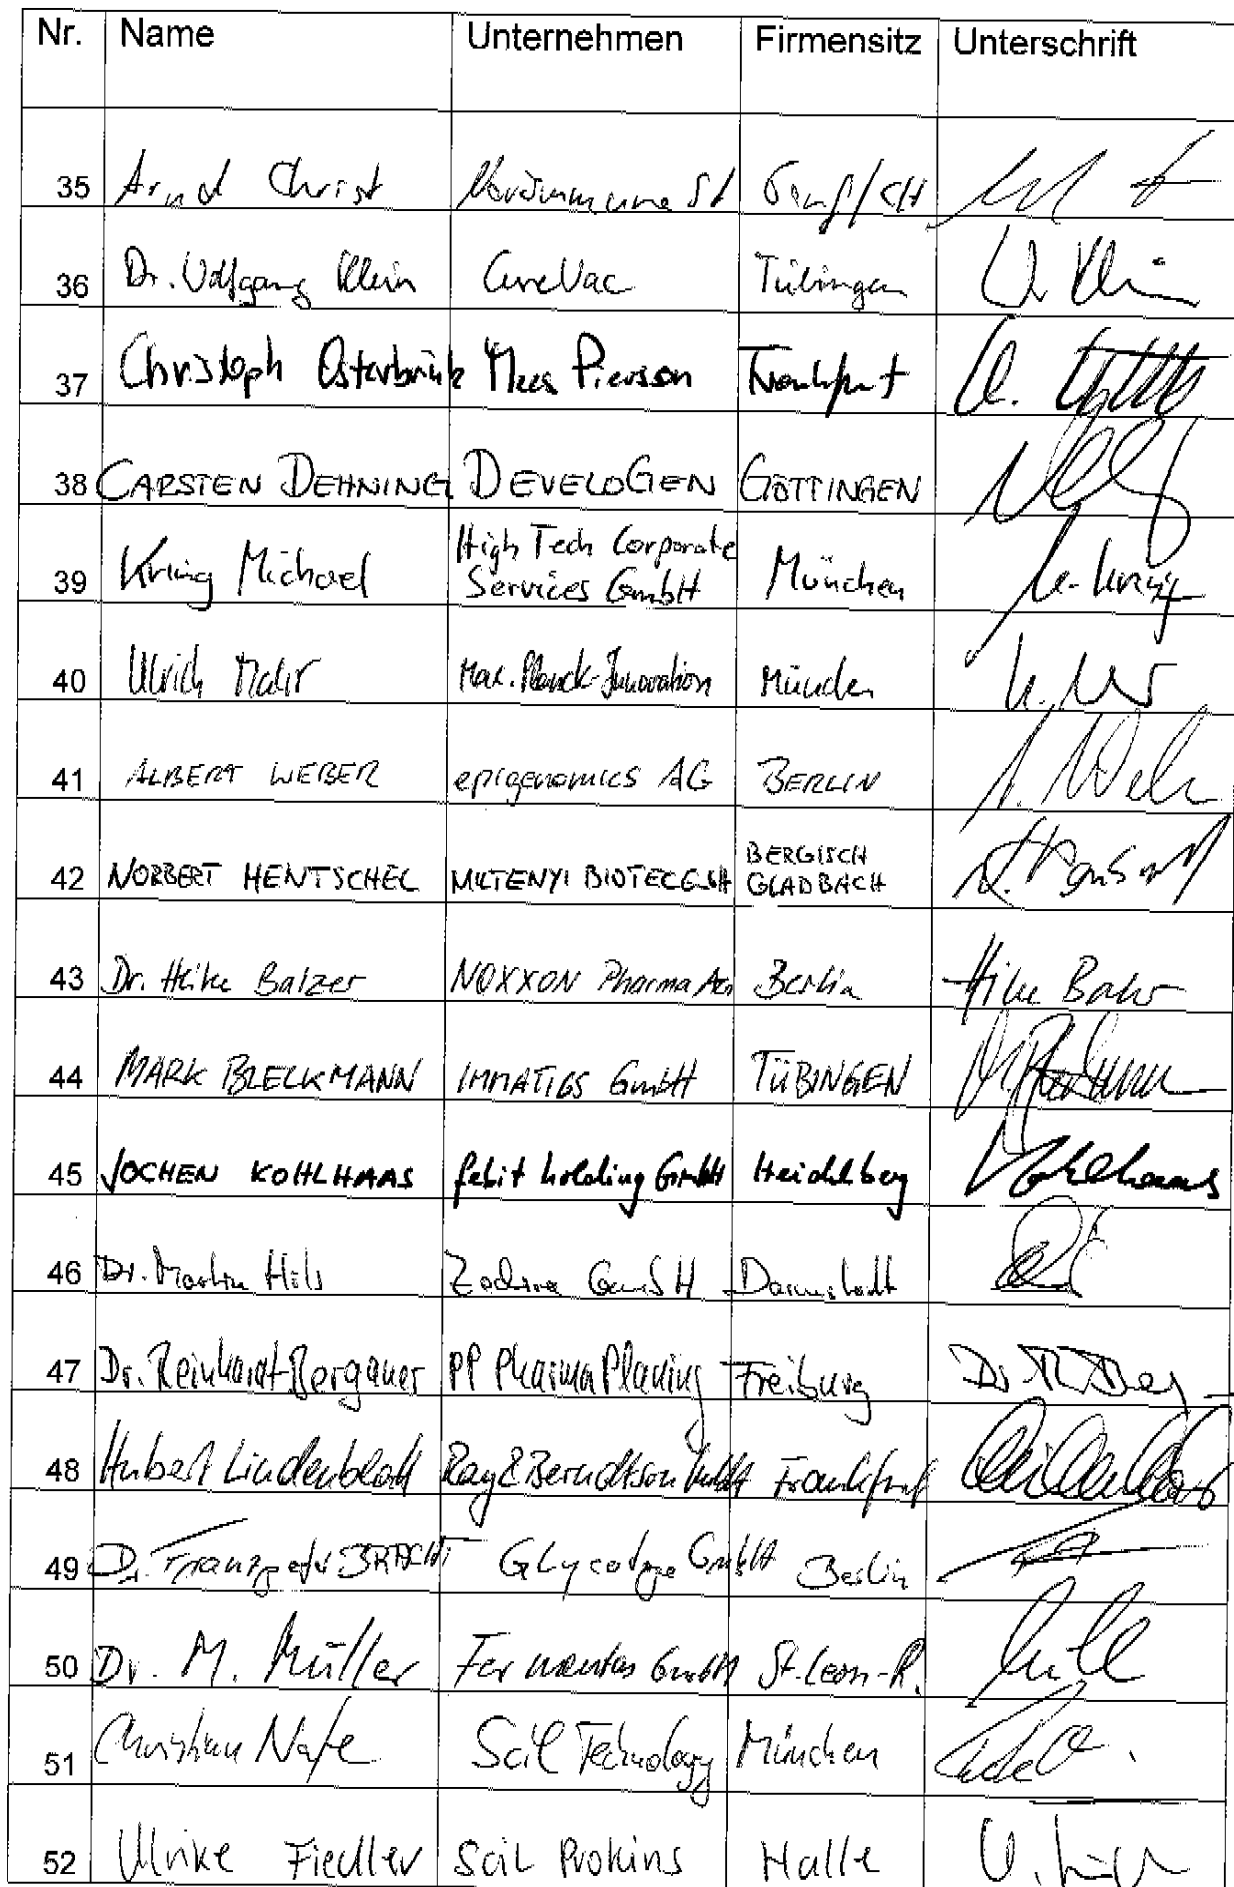 Nr. Name Unternehmen Firmensitz Unterschrift
35 Arnd Christ Novimmune SA Genf/CH
36 Dr. Wolfgang Klein CureVac Tübingen W. Klein
37 Christoph Osterbrink Mees Pierson Frankfurt
38 CARSTEN DEHNING DEVELOGEN GÖTTINGEN
39 Kring Michael High Tech Corporate Services GmbH München
40 Ulrich Mahr Max-Planck-Innovation München
41 ALBERT WEBER epigenomics AG BERLIN A. Weber
42 NORBERT HENTSCHEL MILTENYI BIOTEC GmbH BERGISCH GLADBACH
43 Dr. Heike Balzer NOXXON Pharma AG Berlin Heike Balzer
44 MARK BLECKMANN IMMATICS GmbH TÜBINGEN
45 JOCHEN KOHLHAAS febit holding GmbH Heidelberg Kohlhaas
46 Dr. Martin Hils GmbH Darmstadt
47 Dr. Reinhardt Bergauer PP Pharma Planing Freiburg
48 Hubert Lindenblatt Ray & Berndtson Frankfurt
49 Dr. Franzpeter BRACHT Glycotope GmbH Berlin
50 Dr. M. Müller Fermentas GmbH St. Leon-R.
51 Christian Nafe Scil Technology München
52 Ulrike Fiedler Scil Proteins Halle